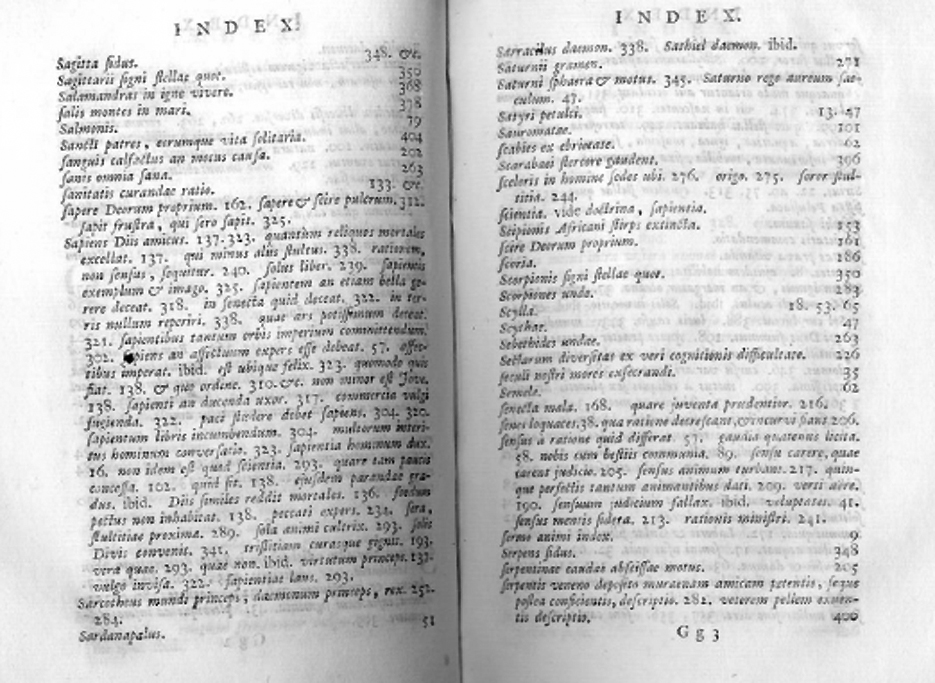 INDEX.
Sagitta ſidus. 348. &c.
Sagittarii ſigni ſtellae quot. 350
Salamandras in igne vivere. 368
ſalis montes in mari. 378
Salmonis. 79
Sancti patres, eorumque vita ſolitaria. 404
ſanguis calfactus an motus cauſa. 202
ſanis omnia ſana. 263
ſanitatis curandae ratio. 133. &c.
ſapere Deorum proprium. 162. ſapere & ſcire pulcrum. 312.
ſapit fruſtra, qui ſero ſapit. 325.
Sapiens Diis amicus. 137. 323. quantum reliquos mortales
excellat. 137. qui minus aliis ſtultus. 338. rationem,
non ſenſus, ſequitur. 240. ſolus liber. 239. ſapientis
exemplum & imago. 325. ſapientem an etiam bella ge-
rere deceat. 318. in ſenecta quid deceat. 322. in ter-
ris nullum reperiri. 338. quae ars potiſſimum deceat.
321. ſapientibus tantum orbis imperium committendum.
302. ſapiens an affectuum expers eſſe debeat. 57. affec-
tibus imperat. ibid. eſt ubique felix. 323. quomodo quis
fiat. 138. & quo ordine. 310. &c. non minor eſt Jove.
138. ſapienti an ducenda uxor. 317. commercia vulgi
fugienda. 322. paci ſtudere debet ſapiens. 304. 320.
ſapientum libris incumbendum. 304. multorum interi-
tus hominum converſatio. 323. ſapientia hominum dux.
16. non idem eſt quod ſcientia. 293. quare tam paucis
conceſſa. 102. quid ſit. 138. ejuſdem parandae gra-
dus. ibid. Diis ſimiles reddit mortales. 136. ſordidum
pectus non inhabitat. 138. peccati expers. 234. ſera,
ſtultitiae proxima. 289. ſola animi cultrix. 293. ſolis
Divis convenit. 341. triſtitiam curasque gignit. 193.
vera quae. 293. quae non. ibid. virtutum princeps. 137.
vulgo inviſa. 322. ſapientiae laus. 293.
Sarcotheus mundi princeps, daemonum princeps, rex. 252.
284.
Sardanapalus. 51
INDEX.
Sarracilus daemon. 338. Sathiel daemon. ibid.
Saturnii gramen. 271
Saturni ſphaera & motus. 345. Saturnio rege aureum ſae-
culum. 47.
Satyri petulci. 13. 47
Sauromatae. 101
ſcabies ex ebrietate. 62
Scarabaei ſtercore gaudent. 306
ſceleris in homine ſedes ubi. 276. origo. 275. ſoror ſtul-
titia. 244.
ſcientia. vide doctrina, ſapientia.
Scipionis Africani ſtirps extincta. 153
ſcire Deorum proprium. 161
ſcoria. 186
Scorpionis ſigni ſtellae quot. 350
Scorpiones unde. 283
Scylla. 18. 53. 65
Scythae. 47
Sebethides undae. 263
Sectarum diverſitas ex veri cognitionis difficultate. 226
ſeculi noſtri mores exſecrandi. 35
Semele. 62
ſenecta mala. 168. quare juventa prudentior. 216.
ſenes loquaces. 38. qua ratione decreſcant, & incurvi fiant 206.
ſenſus à ratione quid differat. 57. gaudia quatenus licita.
58. nobis cum beſtiis communia. 89. ſenſu carere, quae
carent judicio. 205. ſenſus animum turbant. 217. quin-
que perfectis tantum animantibus dati. 209. verſi aëre.
190. ſenſuum judicium fallax. ibid. voluptates. 41.
ſenſus mentis ſidera. 213. rationis miniſtri. 241.
ſermo animi index. 9
Serpens ſidus. 348
ſerpentinae caudae abſciſſae motus. 205
ſerpentis veneno depoſito muraenam amicam petentis, ſaepe
poſtea conficientis, deſcriptio. 282. veterem pellem exuen-
tis deſcriptio. 400
Gg 3